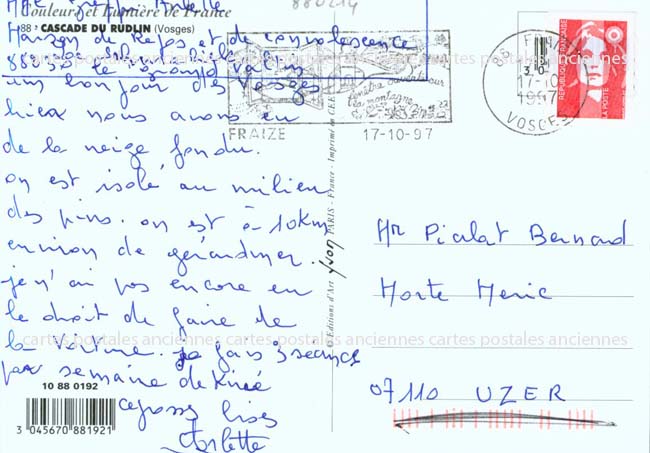 880214
Couleurs et Lumière de France
88 - CASCADE DU RUDLIN (Vosges)
Maison de Repos et de convalescence
88230 le Valtin
un bonjour des Vosges
hier nous avons eu
de la neige fondu.
on est isolé au milieu
des pins. on est à 10km
environ de gérardmer.
je n'ai pas encore eu
le droit de faire de
la voiture. je fais 3 seances
par semaine de Kiné
grosses bises
Arlette
10 88 0192
3 045670 881921
fenêtre ouverte sur
la montagne
FRAIZE 17-10-97
88 FRAIZE
17-10
1997
VOSGES
REPUBLIQUE FRANÇAISE
LA POSTE
© Editions d'Art Yvon PARIS - France - Imprimé en CEE
Mr Pialat Bernard
Morte Meric
07110 UZER
cartes postales anciennes cartes postales anciennes cartes postales anciennes
cartes postales anciennes cartes postales anciennes cartes postales anciennes